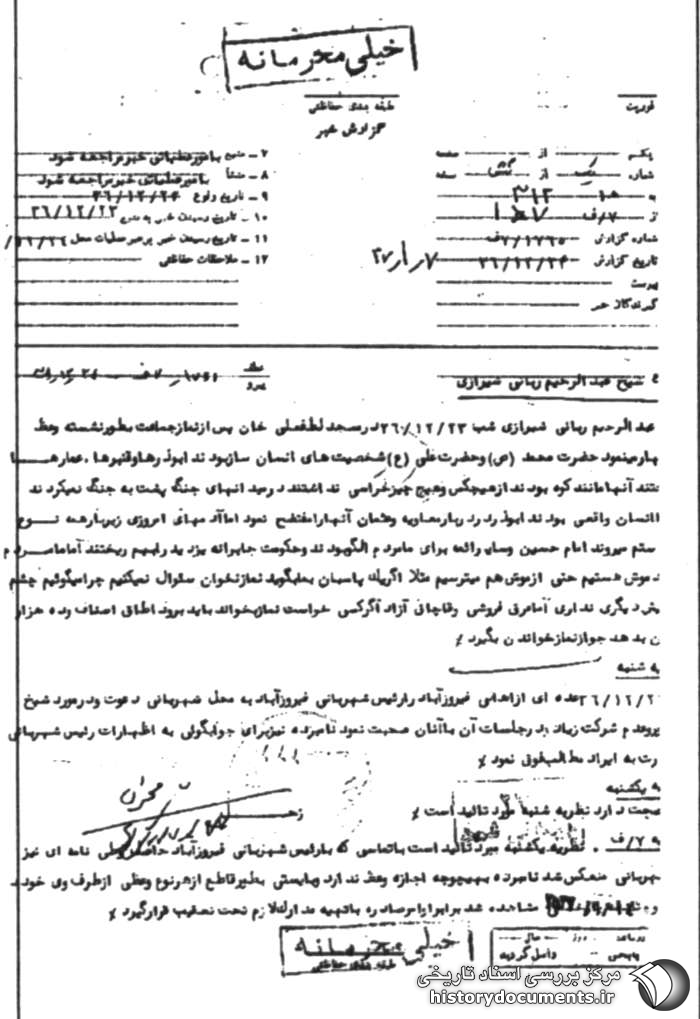 خیلی محرمانه
طبقه بندی حفاظتی
فوریت
گزارش خبر
۷ ـ منبع با امور عملیاتی خبر مراجعه شود
۸ ـ منشأ با امور عملیاتی خبر مراجعه شود
۹ ـ تاریخ وقوع
۱۰ ـ تاریخ رسیدن خبر به منبع ۳۶/۱۲/۲۳
۱۱ ـ تاریخ رسیدن خبر به رهبر عملیات محل
۱۲ ـ ملاحظات حفاظتی
نسخه از صفحه
شماره یک از شش نسخه
به ۳۱۲
از ۷/ف
شماره گزارش ۷/۱۷۶۵ف
تاریخ گزارش ۳۶/۱۲/۲۴
۳۷/۱/۷
پیوست
گیرندگان خبر
شیخ عبدالرحیم ربانی شیرازی
عطف
پیرو
عبدالرحیم ربانی شیرازی شب ۳۶/۱۲/۲۳ در مسجد لطفعلی خان پس از نماز جماعت بطور نشسته وعظ
حضرت محمد (ص) و حضرت علی (ع) شخصیت های انسان ساز بودند ابوذرها و قنبرها ، عمارها
آنها مانند کوه بودند از هیچکس و هیچ چیز هراسی نداشتند در میدانهای جنگ پشت به جنگ نمیکردند
انسان واقعی بودند ابوذر در دربار معاویه و عثمان آنها را مفتضح نمود اما آدمهای امروزی زیر بار همه نوع
ستم میروند امام حسین وسایرائمه برای ما مردم الگو بودند و حکومت جابرانه یزید را بهم ریختند اما ما مردم
موش هستیم حتی از موش هم میترسیم مثلا اگر یک پاسبان بما بگوید نماز نخوان سئوال نمیکنیم چرا میگوئیم چشم
دیگری نداری اما عرق فروشی و قاچاق آزاد اگر کسی خواست نماز بخواند باید برود اطاق اصناف و ده هزار
بدهد جواز نماز خواندن بگیرد ٪
یه شنبه
عده ای از اهالی فیروزآباد را رئیس شهربانی فیروزآباد به محل شهربانی دعوت و در مورد شیخ
و عدم شرکت زیاد در جلسات آن با آنان صحبت نمود نامبرده نیز برای جوابگوئی به اظهارات رئیس شهربانی
به ایراد مطالب فوق نمود ٪
یه یکشنبه
صحت دارد نظریه شنبه مورد تائید است ٪
یه ۷/ف . نظریه یکشنبه مورد تائید است با تماسی که با رئیس شهربانی فیروزآباد حاصل وطی نامه ای نیز
منعکس شد نامبرده بهیچوجه اجازه وعظ ندارد و بایستی بطور قاطع از هر نوع وعظی از طرف وی
مشاهده شد برابر اوامر صادره با تهیه مدارک لازم تحت تعقیب قرار گیرد ٪
خیلی محرمانه
طبقه بندی حفاظتی
روز سال
بایگانی واصل گردید
مرکز بررسی اسناد تاریخی
historydocuments.ir